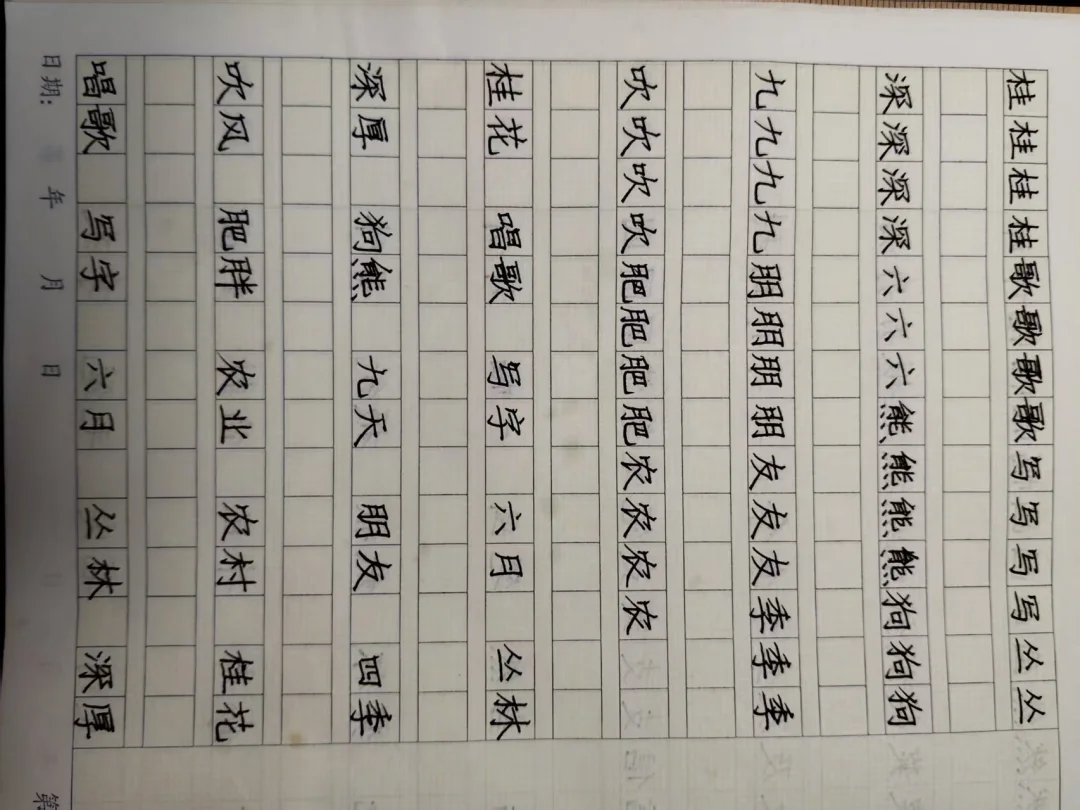 桂桂桂桂歌歌歌歌写写写写丛丛
深深深深六六六熊熊熊熊狗狗狗
九九九九朋朋朋朋友友友季季季
吹吹吹吹肥肥肥肥农农农农
桂花 唱歌 写字 六月 丛林
深厚 狗熊 九天 朋友 四季
吹风 肥胖 农业 农村 桂花
唱歌 写字 六月 丛林 深厚
日期: 年 月 日 第